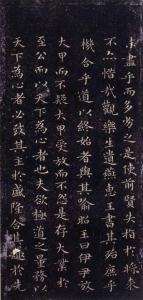 未盡乎而多劣之是使前賢失指於將来
不亦惜哉觀樂生遺燕惠王書其殆庶乎
機合乎道以終始者與其喻昭王曰伊尹放
大甲而不疑大甲受放而不怨是存大業於
至公而以天下為心者也夫欲極道之量務以
天下為心者必致其主於盛隆合其趣於先